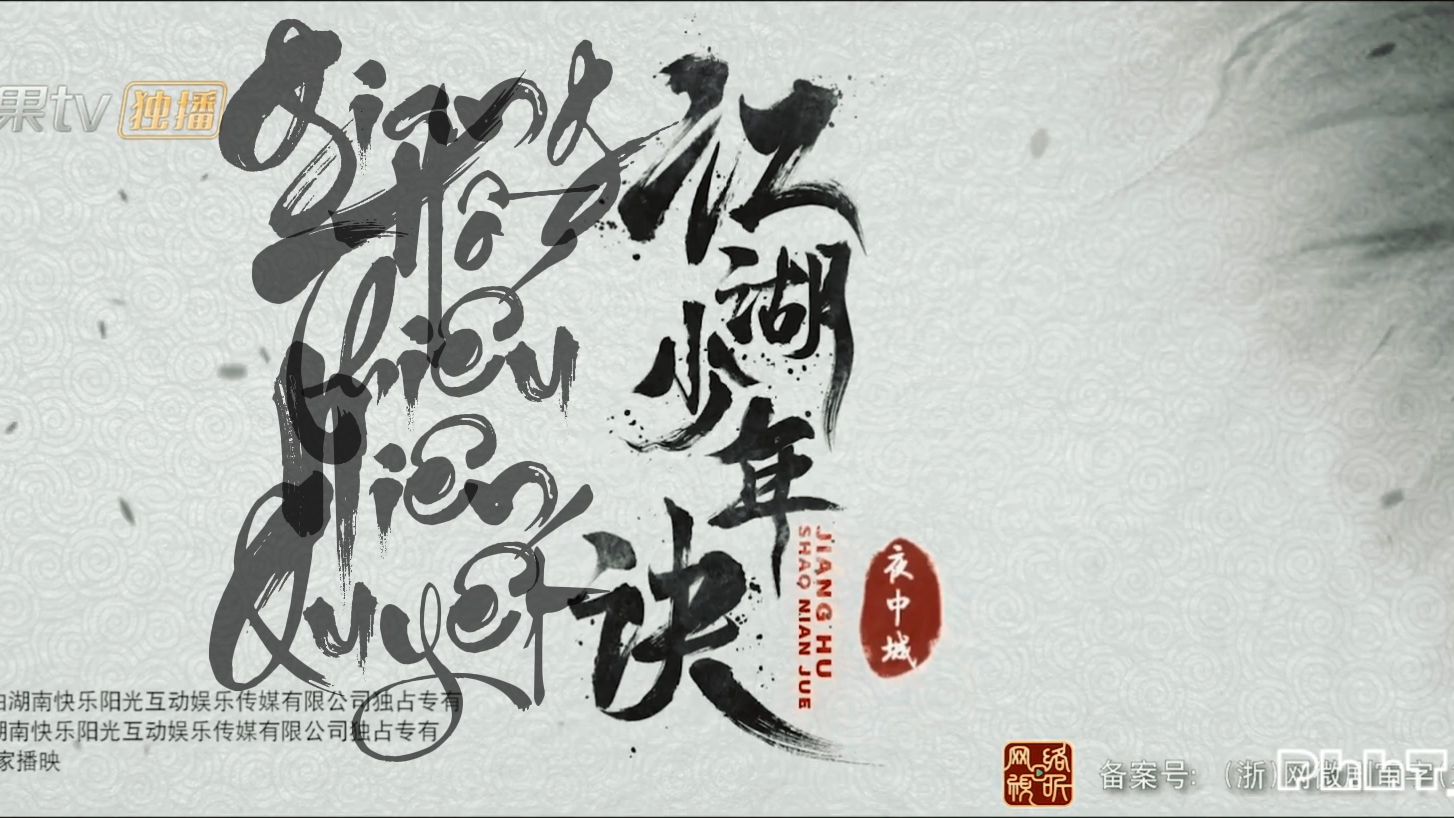 果tv 独播
Giang
Hồ
thiếu
Niên
Quyết
江湖少年诀
JIANG HU
SHAO NIAN JUE
夜中城
由湖南快乐阳光互动娱乐传媒有限公司独占专有
湖南快乐阳光互动娱乐传媒有限公司独占专有
家播映
网络视听
备案号:（浙）网微剧审字